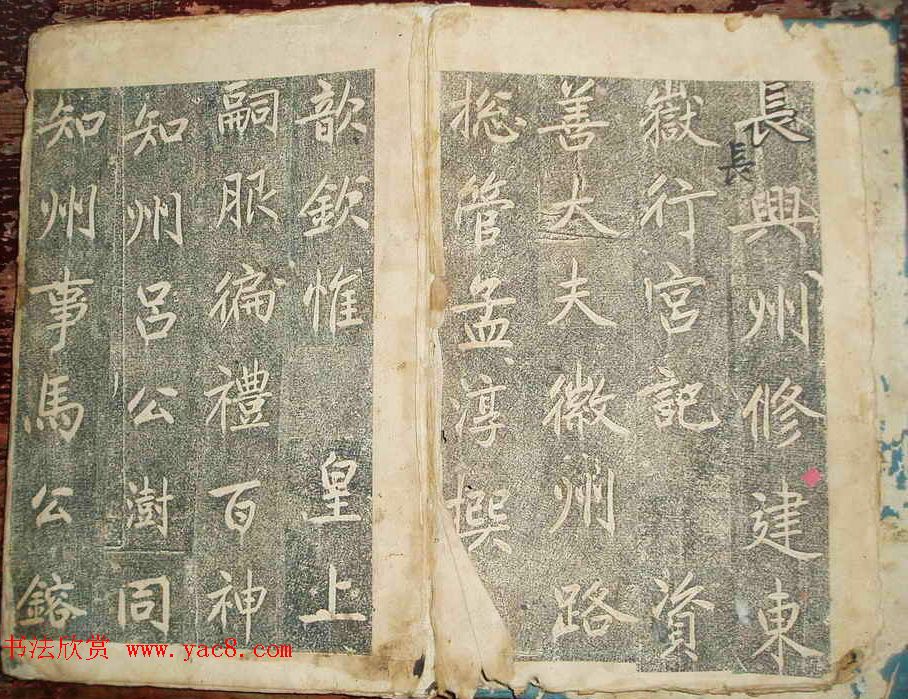 長興州修建東
嶽行宮記 資
善大夫徽州路
揔管孟淳撰
歆欽惟 皇上
嗣服徧禮百神
知州呂公澍同
知州事馬公鎔
長
书法欣赏 www.yac8.com